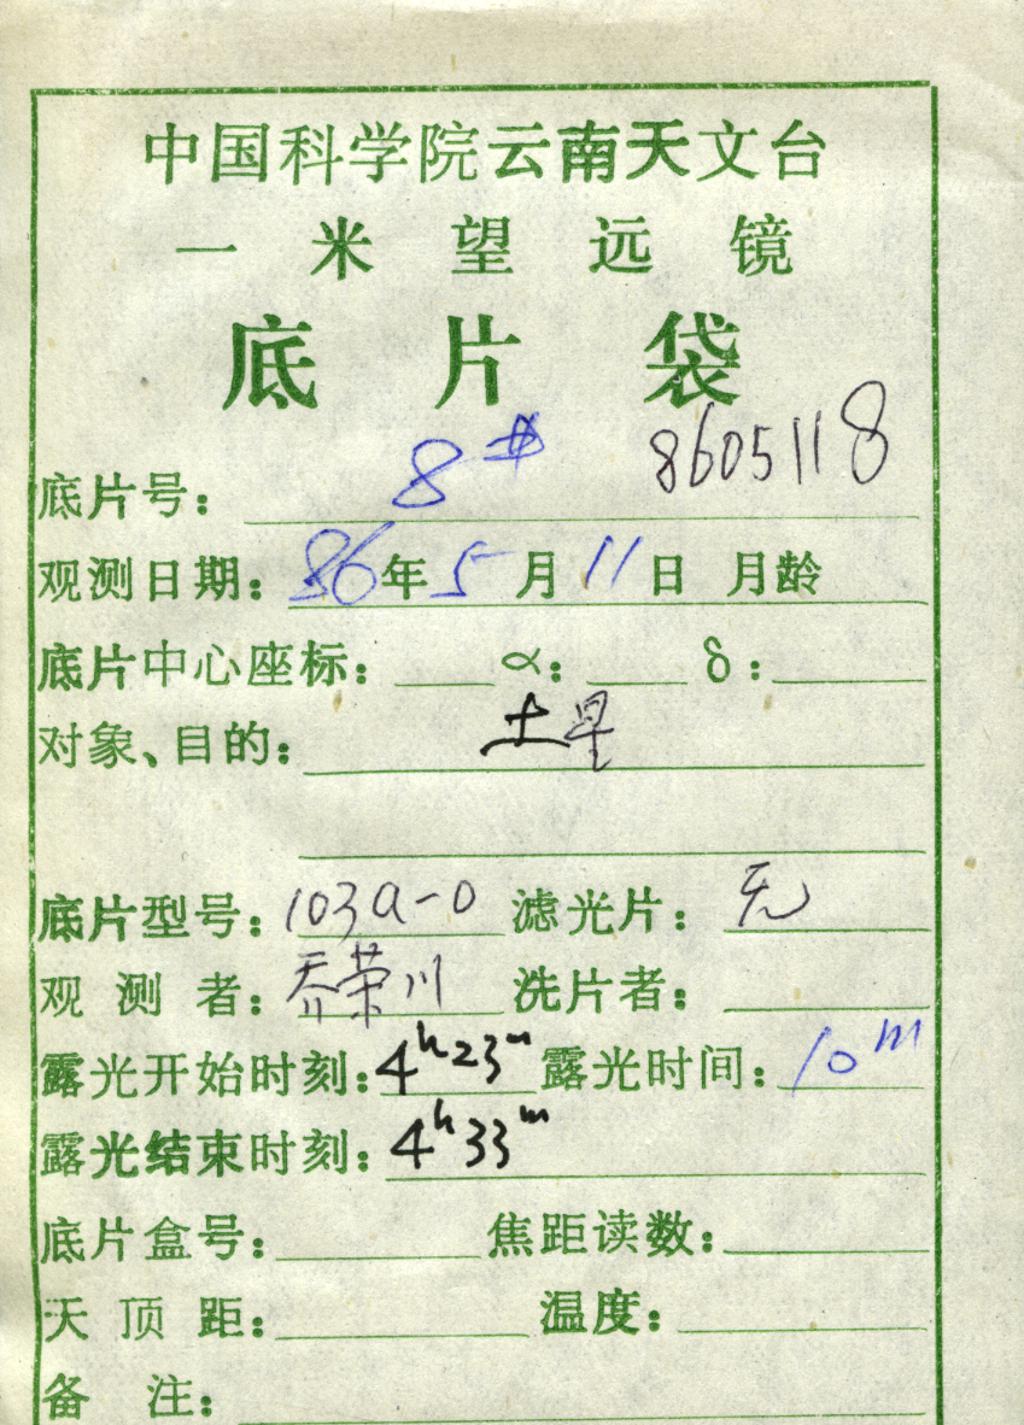 中国科学院云南天文台
一米望远镜
底片袋
底片号: 8# 8605118
观测日期: 86年5月11日 月龄
底片中心座标: α: δ:
对象、目的: 土星
底片型号: 103a-O 滤光片: 无
观测者: 乔荣川 洗片者:
露光开始时刻: 4h23m 露光时间: 10m
露光结束时刻: 4h33m
底片盒号: 焦距读数:
天顶距: 温度:
备注: